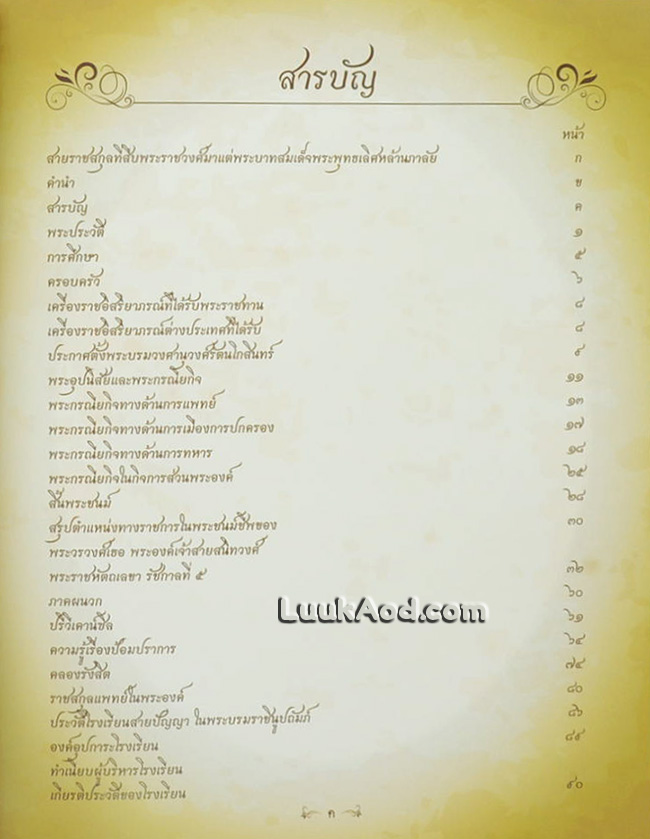 สารบัญ
หน้า
สายราชสกุลที่สืบพระราชวงศ์มาแต่พระบาทสมเด็จพระพุทธเลิศหล้านภาลัย ก
คำนำ ข
สารบัญ ค
พระประวัติ ๑
การศึกษา ๕
ครอบครัว ๖
เครื่องราชอิสริยาภรณ์ที่ได้รับพระราชทาน ๘
เครื่องราชอิสริยาภรณ์ต่างประเทศที่ได้รับ ๘
ประกาศตั้งพระบรมวงศานุวงศ์รัตนโกสินทร์ ๙
พระอุปนิสัยและพระกรณียกิจ ๑๑
พระกรณียกิจทางด้านการแพทย์ ๑๓
พระกรณียกิจทางด้านการเมืองการปกครอง ๑๗
พระกรณียกิจทางด้านการทหาร ๑๘
พระกรณียกิจในกิจการส่วนพระองค์ ๒๕
สิ้นพระชนม์ ๒๘
สรุปตำแหน่งทางราชการในพระชนม์ชีพของ ๓๐
พระวรวงศ์เธอ พระองค์เจ้าสายสนิทวงศ์
พระราชหัตถเลขา รัชกาลที่ ๕ ๓๒
ภาคผนวก ๖๐
ปรีวีเคาน์ซิล ๖๑
ความรู้เรื่องป้อมปราการ ๖๔
คลองรังสิต ๗๔
ราชสกุลแพทย์ในพระองค์ ๘๐
ประวัติโรงเรียนสายปัญญา ในพระบรมราชินูปถัมภ์ ๘๖
องค์อุปการะโรงเรียน ๘๙
ทำเนียบผู้บริหารโรงเรียน
เกียรติประวัติของโรงเรียน ๙๐
ค
LuukAod.com